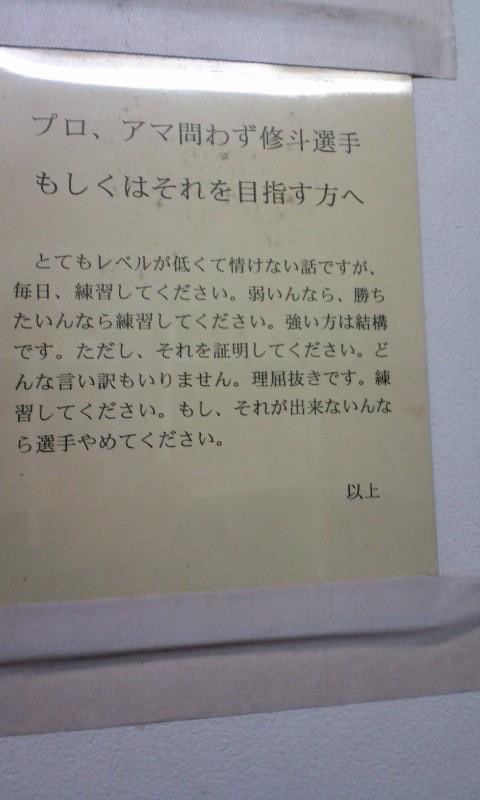 プロ、アマ問わず修斗選手
もしくはそれを目指す方へ
とてもレベルが低くて情けない話ですが、
毎日、練習してください。弱いんなら、勝ち
たいんなら練習してください。強い方は結構
です。ただし、それを証明してください。ど
んな言い訳もいりません。理屈抜きです。練
習してください。もし、それが出来ないんな
ら選手やめてください。
以上